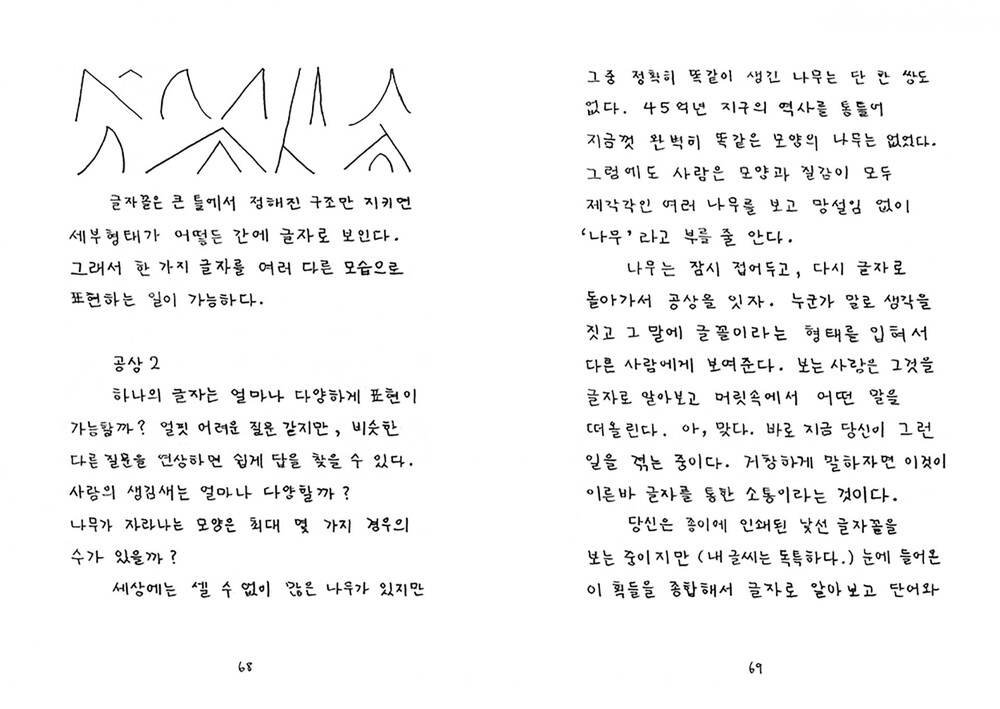 글자꼴은 큰 틀에서 정해진 구조만 지키면
세부형태가 어떻든 간에 글자로 보인다.
그래서 한 가지 글자를 여러 다른 모습으로
표현하는 일이 가능하다.
공상 2
하나의 글자는 얼마나 다양하게 표현이
가능할까? 얼핏 어려운 질문 같지만, 비슷한
다른 질문을 연상하면 쉽게 답을 찾을 수 있다.
사람의 생김새는 얼마나 다양할까?
나무가 자라나는 모양은 최대 몇 가지 경우의
수가 있을까?
세상에는 셀 수 없이 많은 나무가 있지만
68
그중 정확히 똑같이 생긴 나무는 단 한 쌍도
없다. 45억년 지구의 역사를 통틀어
지금껏 완벽히 똑같은 모양의 나무는 없었다.
그럼에도 사람은 모양과 질감이 모두
제각각인 여러 나무를 보고 망설임 없이
‘나무’라고 부를 줄 안다.
나무는 잠시 접어두고, 다시 글자로
돌아가서 공상을 잇자. 누군가 말로 생각을
짓고 그 말에 글꼴이라는 형태를 입혀서
다른 사람에게 보여준다. 보는 사람은 그것을
글자로 알아보고 머릿속에서 어떤 말을
떠올린다. 아, 맞다. 바로 지금 당신이 그런
일을 겪는 중이다. 거창하게 말하자면 이것이
이른바 글자를 통한 소통이라는 것이다.
당신은 종이에 인쇄된 낯선 글자꼴을
보는 중이지만 (내 글씨는 독특하다.) 눈에 들어온
이 획들을 종합해서 글자로 알아보고 단어와
69